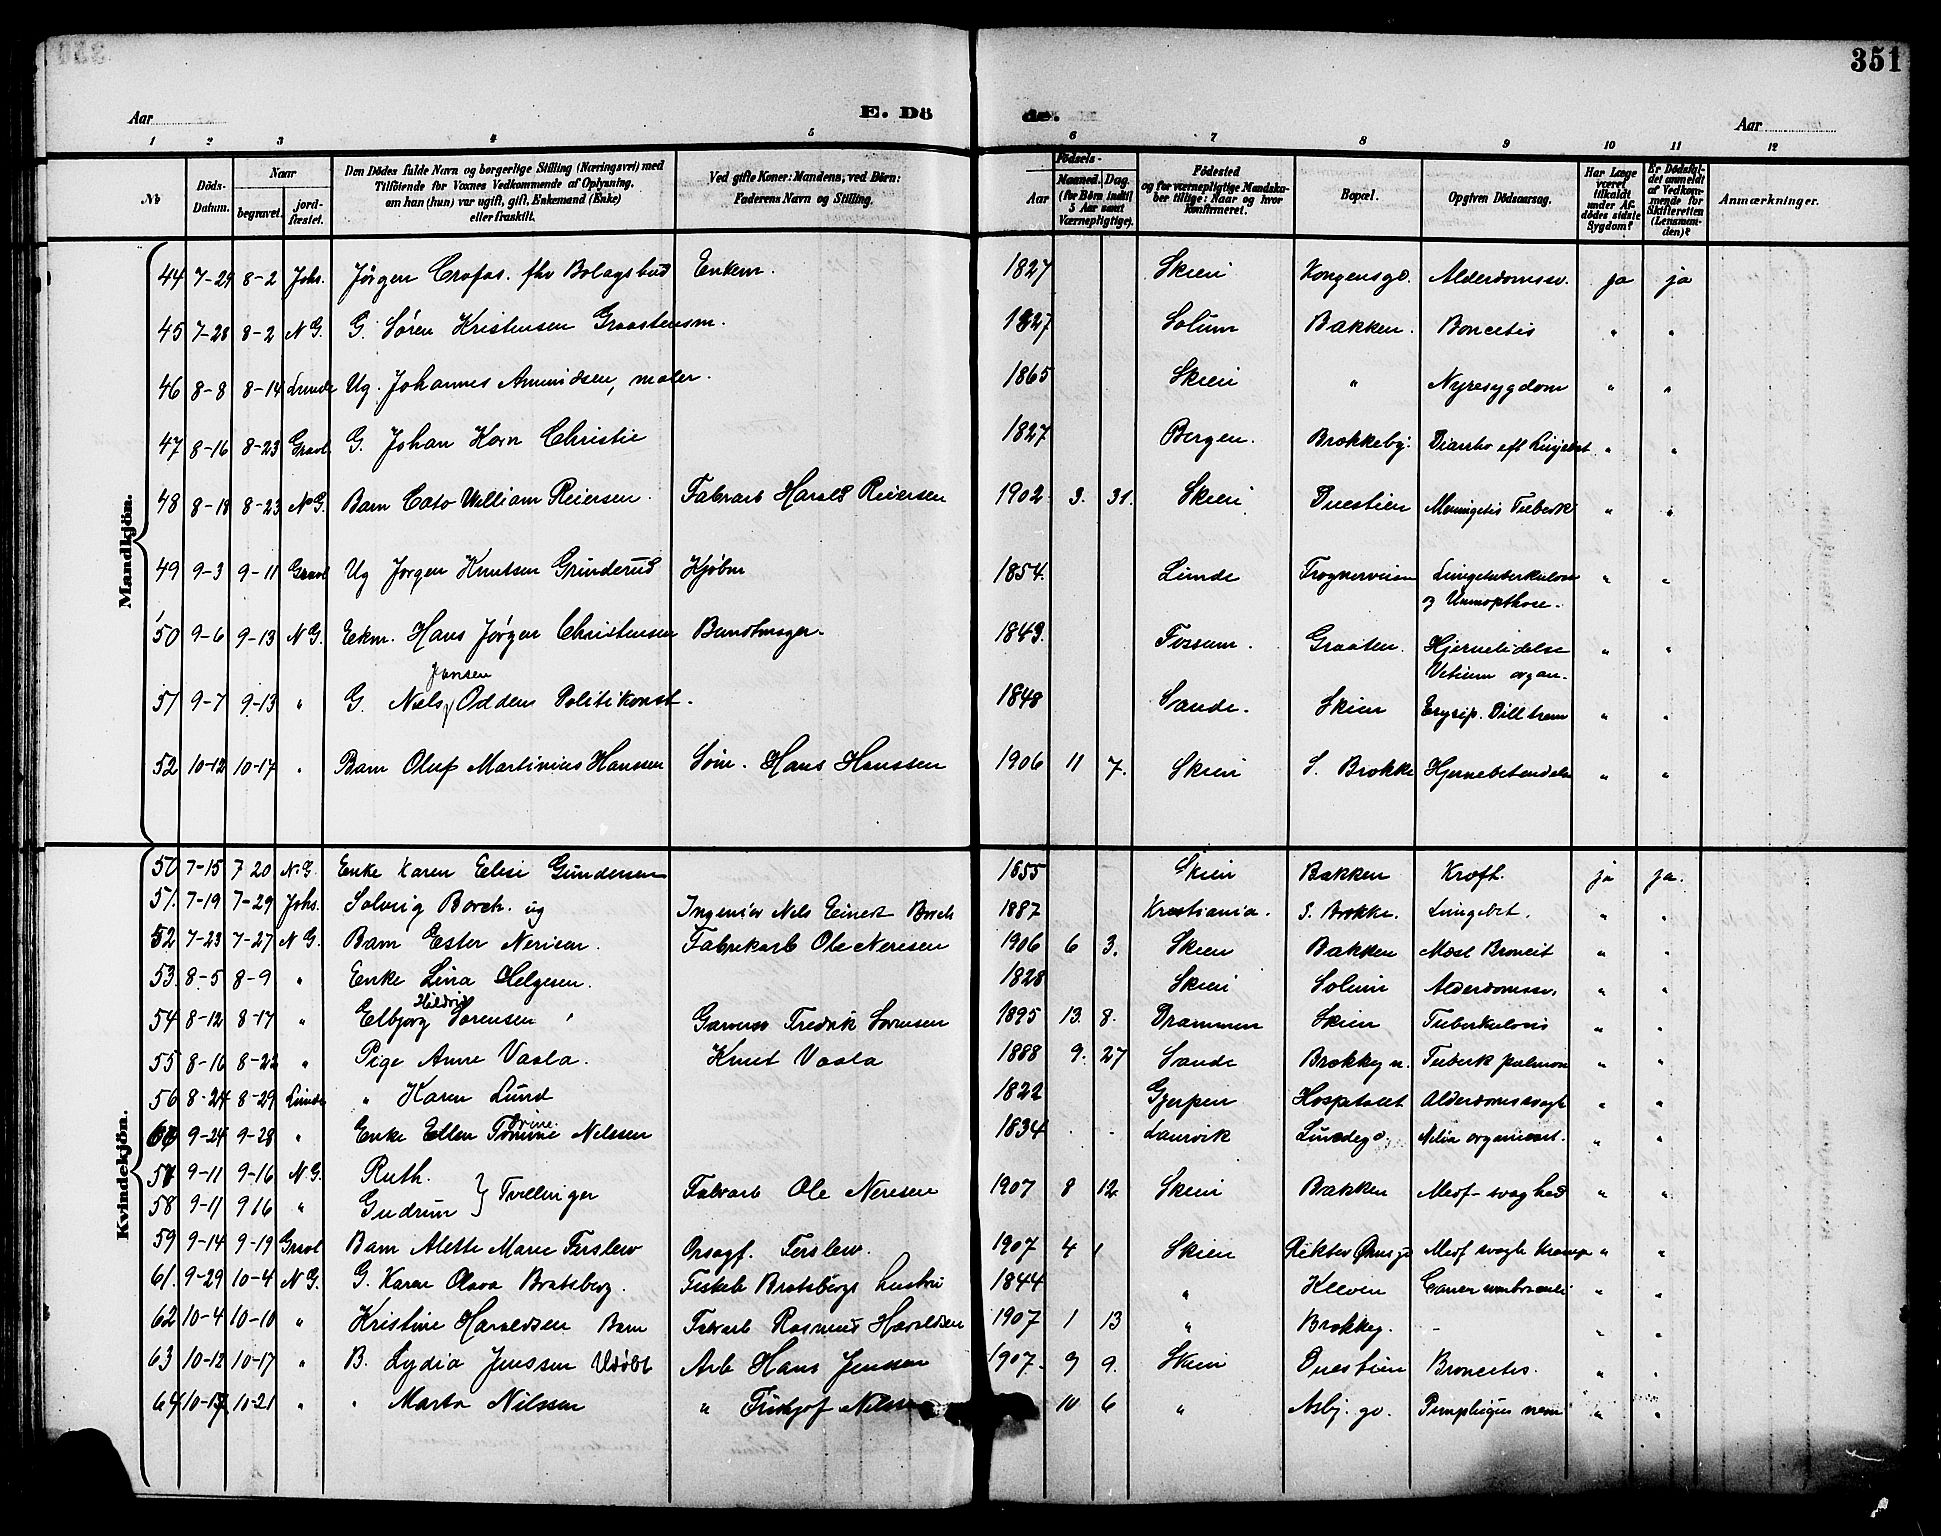 351
Aar E. Dö de. Aar
1 2 3 4 5 6 7 8 9 10 11 12
No
Döds-Datum.
Naar
begravet. jordfæstet.
Den Dödes fulde Navn og borgerlige Stilling (Næringsvei) med Tilföiende for Voxnes Vedkommende af Oplysning, om han (hun) var ugift, gift, Enkemand (Enke) eller fraskilt.
Ved gifte Koner: Mandens; ved Börn: Faderens Navn og Stilling.
Födsels-
Aar Maaned. Dag
(for Börn indtil 5 Aar samt Værnepligtige).
Födested og for værnepligtige Mandskaber tillige: Naar og hvor konfirmeret.
Bopæl.
Opgiven Dödsaarsag.
Har Læge været tilkaldt under Afdödes sidste Sygdom?
Er Dödsfaldet anmeldt af Vedkommende for Skifteretten (Lensmanden)?
Anmærkninger.
Mandkjön.
44 7-29 8-2 Johs. Jörgen Crofas. fhv Bolagsbud Enkem. 1827 Skien Kongensgd. Alderdomssv. ja ja
45 7-28 8-2 N G. G. Sören Kristensen Graastensm. 1827 Solum Bakken. Boncetis " "
46 8-8 8-14 Lunde Ug. Johannes Amundsen, maler. 1865 Skien " Nyresygdom " "
47 8-16 8-23 Gravl. G. Johan Korn Christie 1827 Bergen. Brekkeby. Diarrho eft " "
48 8-18 8-23 N G. Barn Cato William Reiersen. Fabrarb Harald Reiersen 1902 3. 31. Skien Duestien Meningitis Tuberk " "
49 9-3 9-11 Gravl Ug Jorgen Knutsen Grinderud Kjöbm 1854. Lunde Trognerveien Lungetuberkulose " "
og
50 9-6 9-13 N G. Ekm. Hans Jörgen Christensen Buntmager. 1843. Fossum. Graaten. Hjernelidelse " "
Vitium organ.
Jansen
51 9-7 9-13 " G. Niels Odden Politikonst. 1848 Sande. Skien Erysip. Dill trem " "
52 10-12 10-17 " Barn Oluf Martinius Hanssen Söm. Hans Hanssen 1906 11 7. Skien S. Brekke Hjernebetendelse " "
Kvindekjön.
50 7-15 7 20 N. G. Enke Karen Elise Gundersen 1855 Skien Bakken Kræft. ja ja.
51. 7-19 7-29 Johs. Solveig Borch. ug Ingeniör Nels Einert Borch 1887 Kristiania. S. Brekke. Lungebet. " "
52 7-23 7-27 N G. Barn Ester Nerisen. Fabrikarb Ole Neresen 1906 6 3. Skien Bakken Mæsl Broncit " "
53. 8-5 8-9 " Enke Lina Helgesen. 1828 Skien Solum Alderdomssv. " "
Hildrid
54 8-12 8-17 " Elbjorg Sorensen Garverso Fredrik Sorensen 1895 13. 8. Drammen Skien Tuberkulosis " "
55 8-16 8-22 " Pige Anne Vaala. Knut Vaala 1888 9. 27 Sande Brekkey n. Tuberk palmon " "
56 8-24 8-29 Lunde " Karen Lund 1822 Gjerpen Hospitalet Alderdomssvagh " "
Trine.
60 9-24 9-28 " Enke Ellen Tomine Nelssen 1834 Laurvik Lundegd. organicart. " "
57 9-11 9-16 N G. Ruth. } Tvillinger Fabrarb Ole Neresen 1907 8 12. Skien Bakken Medf-svaghed " "
58 9-11 9 16 " Gudrun " "
59 9-14 9-19 Gravl Barn Alette Marie Ferslew Opsagf. Ferslew. 1907 4 1 Skien Medf svagh Krampe " "
61. 9-29 10-4 N G. G. Karen Olava Bratsberg. Feskeh Bratsbergs hustru 1844 " Kleven Cancer " "
62 10-4 10-10 " Kristine Haraldsen Barn Fabrarb Rasmus Haraldsen 1907 1 13 " Brekkey. - " "
63 10-12 10-17 " B. Lydia Jenssen Udöbt Arb Hans Jenssen 1907. 9 9. Skien Duestien Broncetes. " "
64 10-17 10-21 " " Marta Nilssen " Fridtjof Nilssen 10 6 " Asbj. gd. Pemphigus neon " "